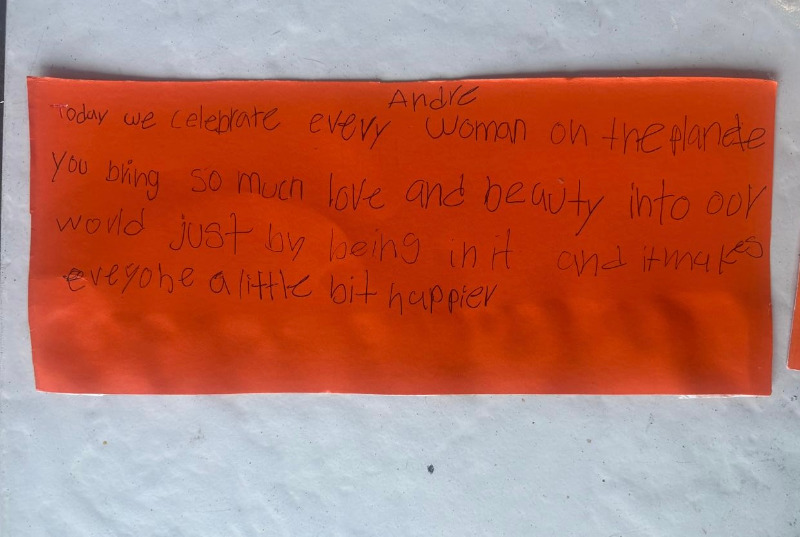 Andre
Today we celebrate every woman on the planete
you bring so much love and beauty into our
world just by being in it and it makes
eveyone a little bit happier